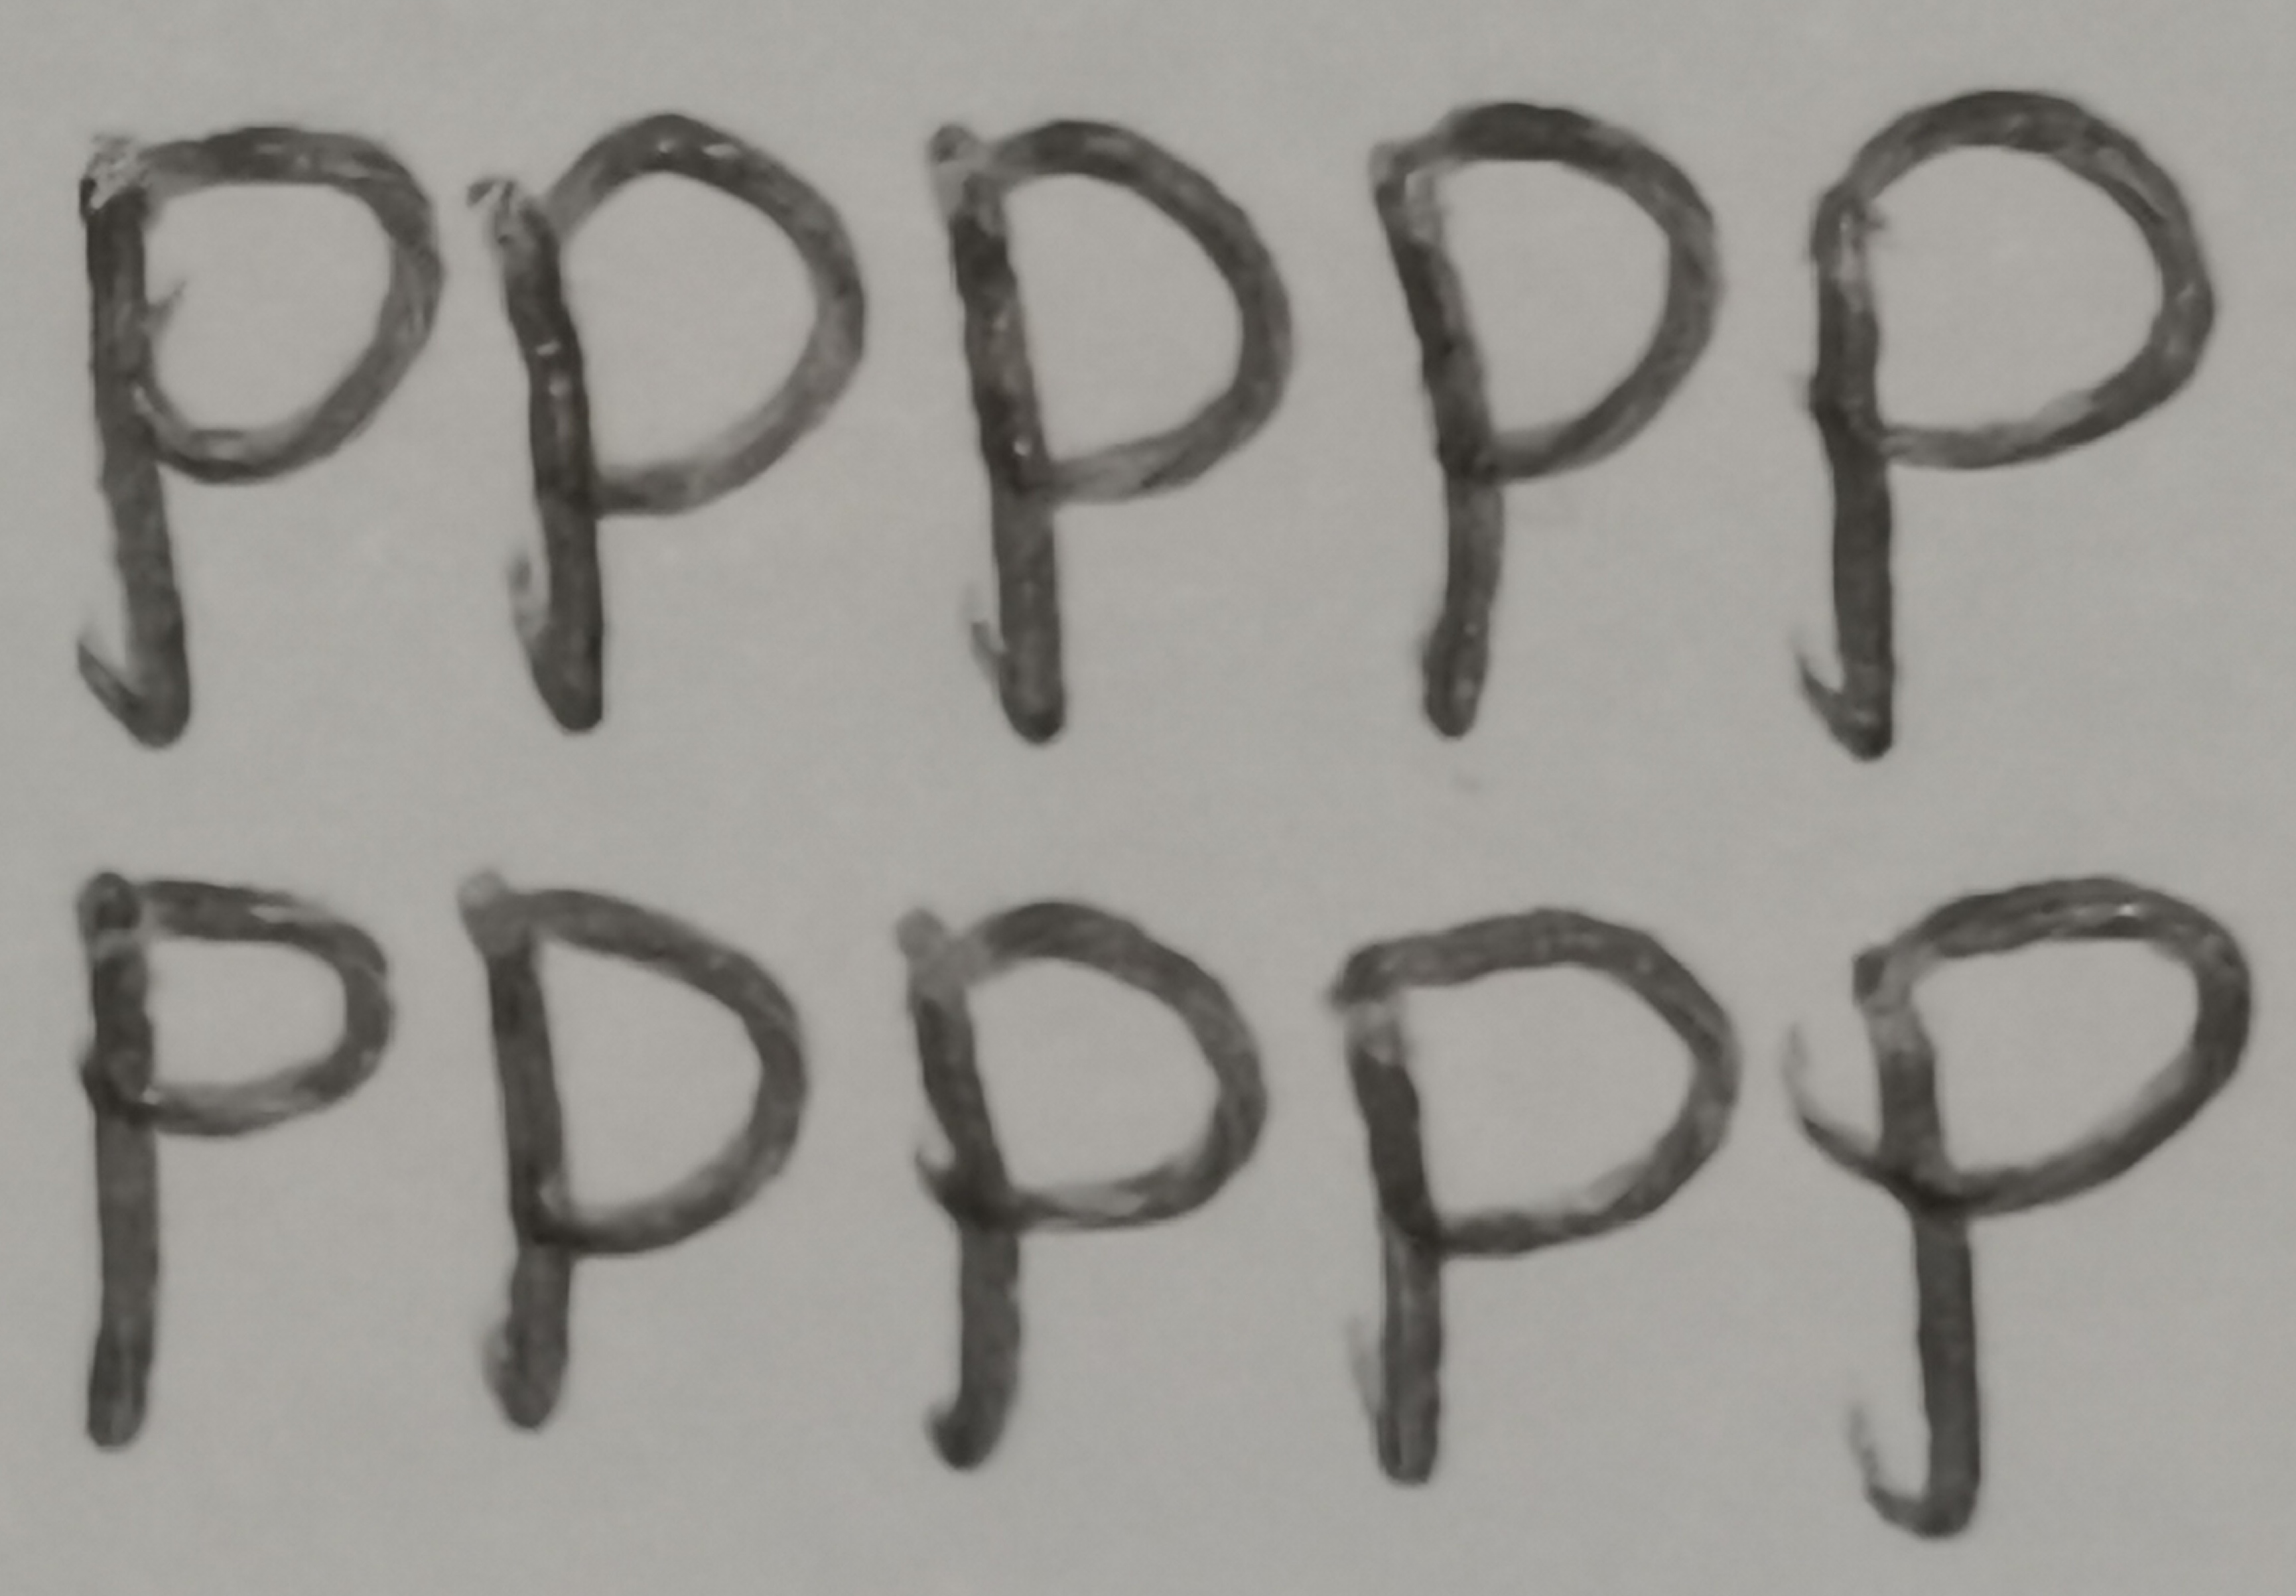 P P P P P
P P P P P